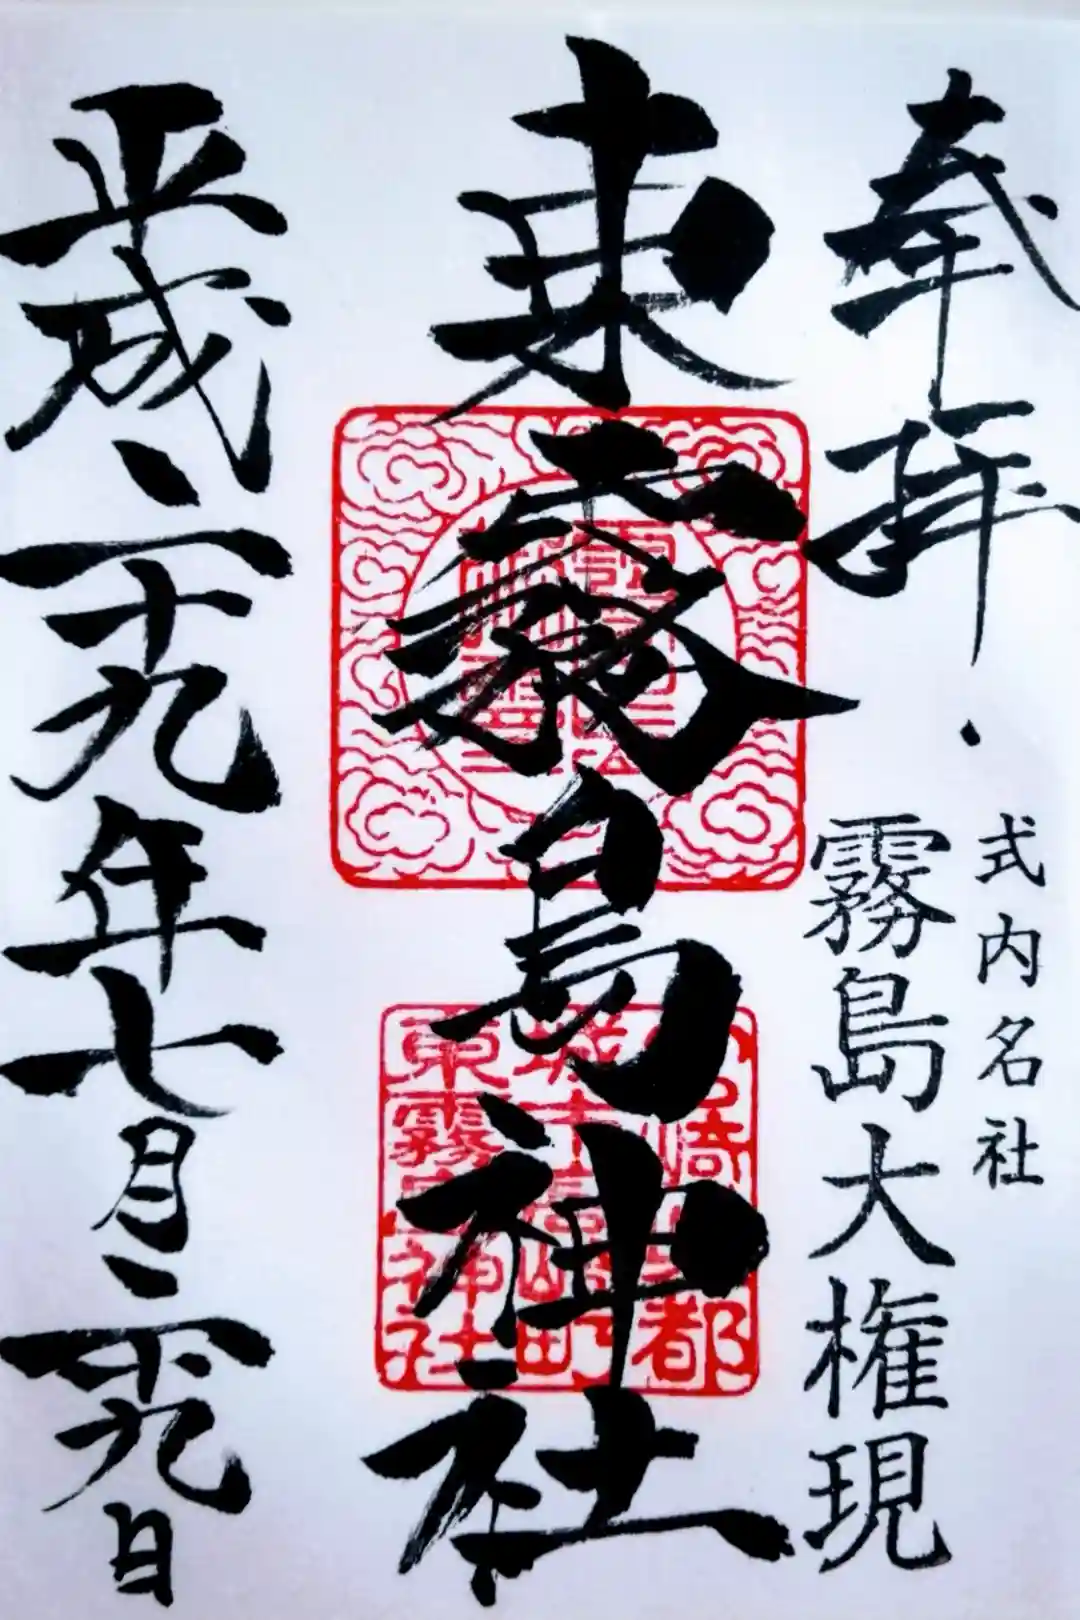 奉拝
式内名社
霧島大権現
東霧島神社
平成二十九年七月二十九日
崎
都
城
町
東霧島神社